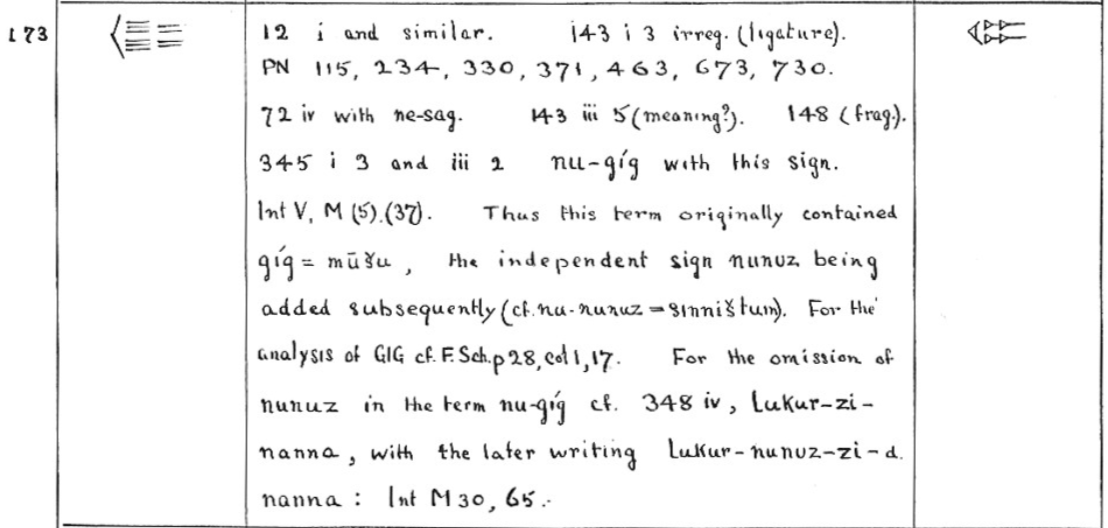 173
12 i and similar. 143 i 3 irreg. (ligature).
PN 115, 234, 330, 371, 463, 673, 730.
72 iv with ne-sag. 143 iii 5 (meaning?). 148 (frag.).
345 i 3 and iii 2 nu-gíg with this sign.
Int V, M (5).(37). Thus this term originally contained
gíg = mūšu, the independent sign nunuz being
added subsequently (cf. nu-nunuz = sinništum). For the
analysis of GIG cf. F. Sch. p 28, col 1, 17. For the omission of
nunuz in the term nu-gíg cf. 348 iv, Lukur-zi-
nanna, with the later writing Lukur-nunuz-zi-d.
nanna: Int M 30, 65.